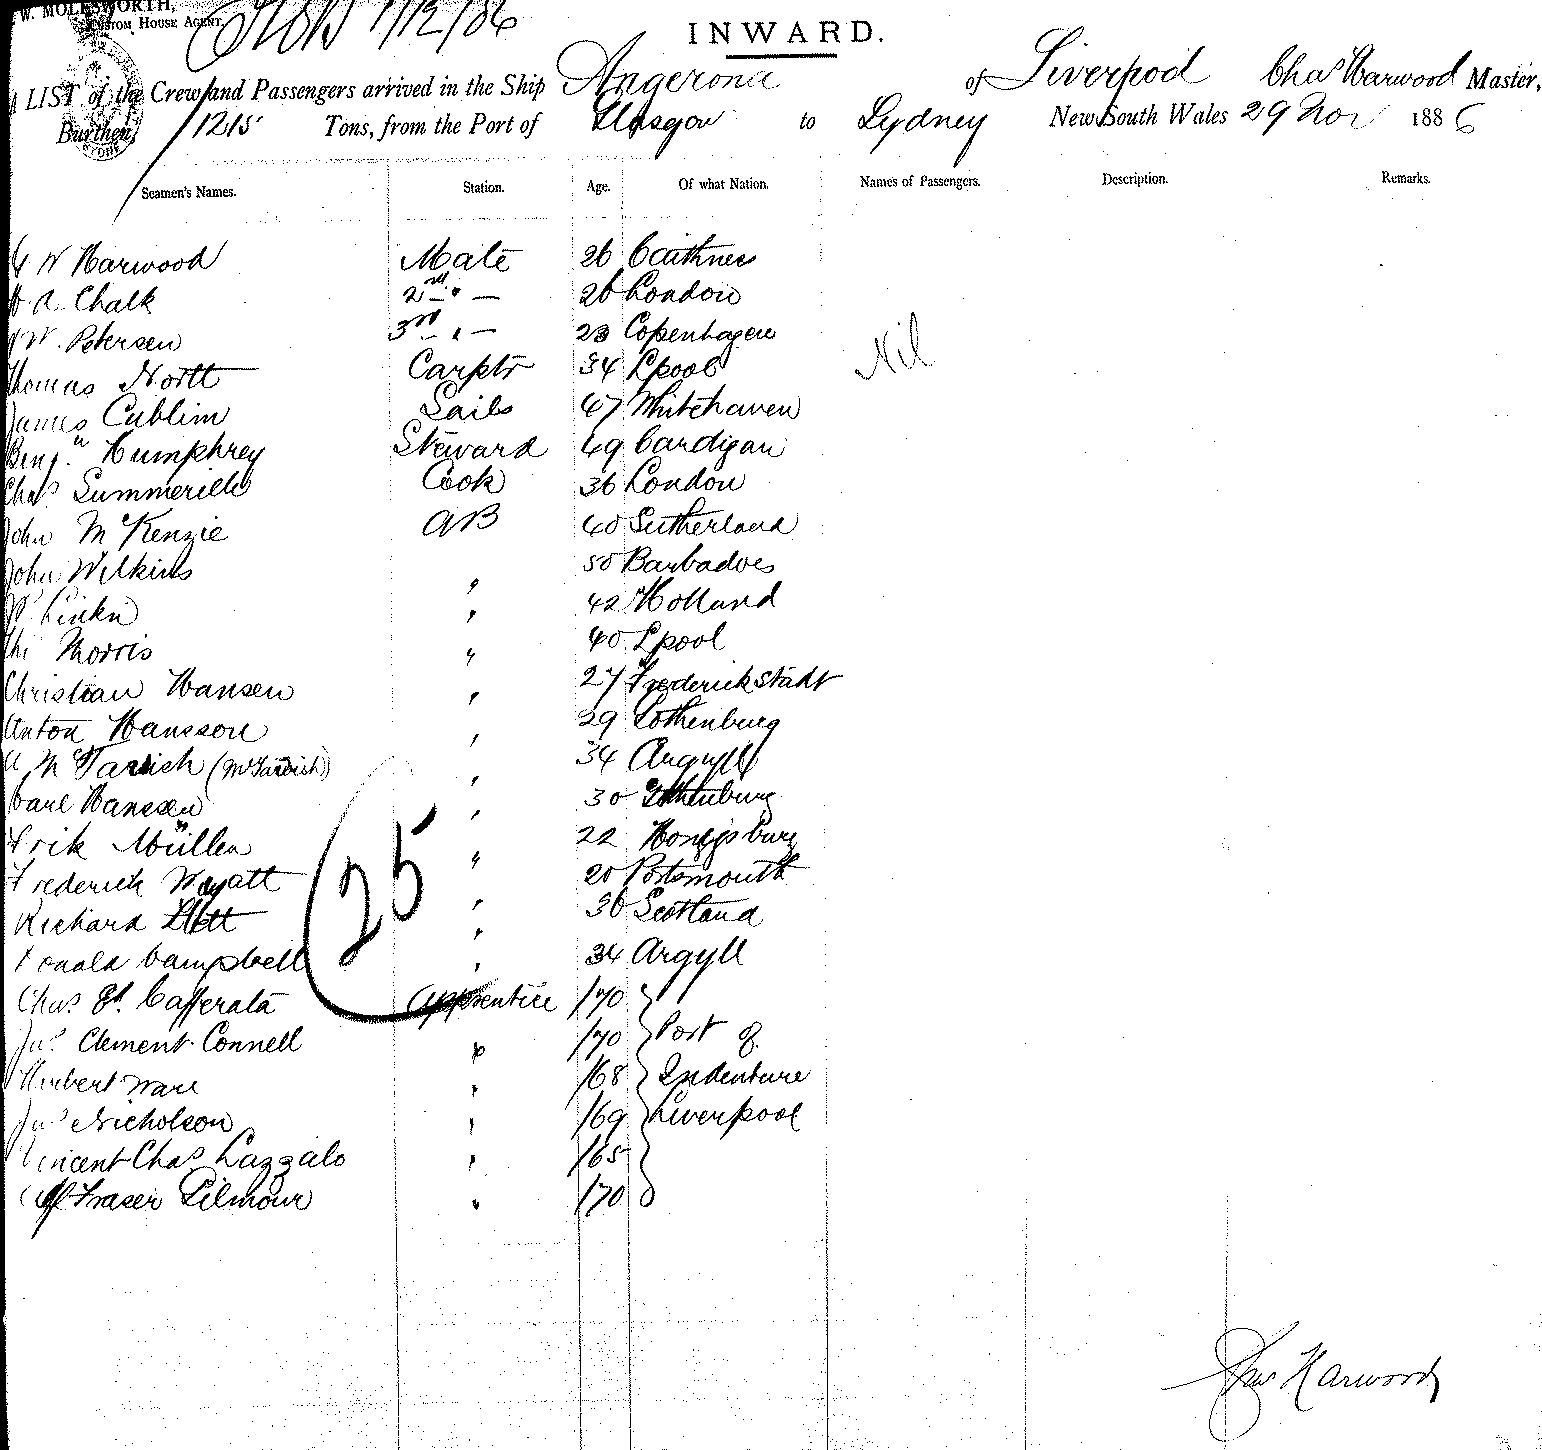 W. MOLESWORTH,
CUSTOM HOUSE AGENT,
1/12/86
INWARD.
LIST of the Crew and Passengers arrived in the Ship Angerona of Liverpool Chas Harwood Master,
Burthen, 1215 Tons, from the Port of Glasgow to Sydney New South Wales 29 Nov 1886
Seamen's Names. Station. Age. Of what Nation. Names of Passengers. Description. Remarks.
W Harwood Mate 26 Caithness
A Chalk 2nd " — 26 London
W. Petersen 3rd " — 23 Copenhagen
Nil
Thomas North Carptr 34 Lpool
James Cublim Sails 47 Whitehaven
Benjn Humphrey Steward 49 Cardigan
Chas Summerille Cook 36 London
John McKenzie AB 40 Sutherland
John Wilkins " 50 Barbadoes
" 42 Holland
Morris " 40 Lpool
Christian Hansen " 27 Frederickstadt
Anton Hansson " 29 Gothenburg
A McTavish (McTavish) " 34 Argyll
Carl Hanssen " 30 Gothenburg
Erik Müller " 22
Frederick Wyatt " 20 Portsmouth
Richard " 36 Scotland
Donald Campbell " 34 Argyll
25
Chas Ed. Cafferata Apprentice /70
Jno Clement Connell " /70 Port of
Herbert Ware " /68 Indenture
Jno Nicholson " /69 Liverpool
Vincent Chas Lazzalo " /65
Fraser Gilmour " /70
Chas Harwood